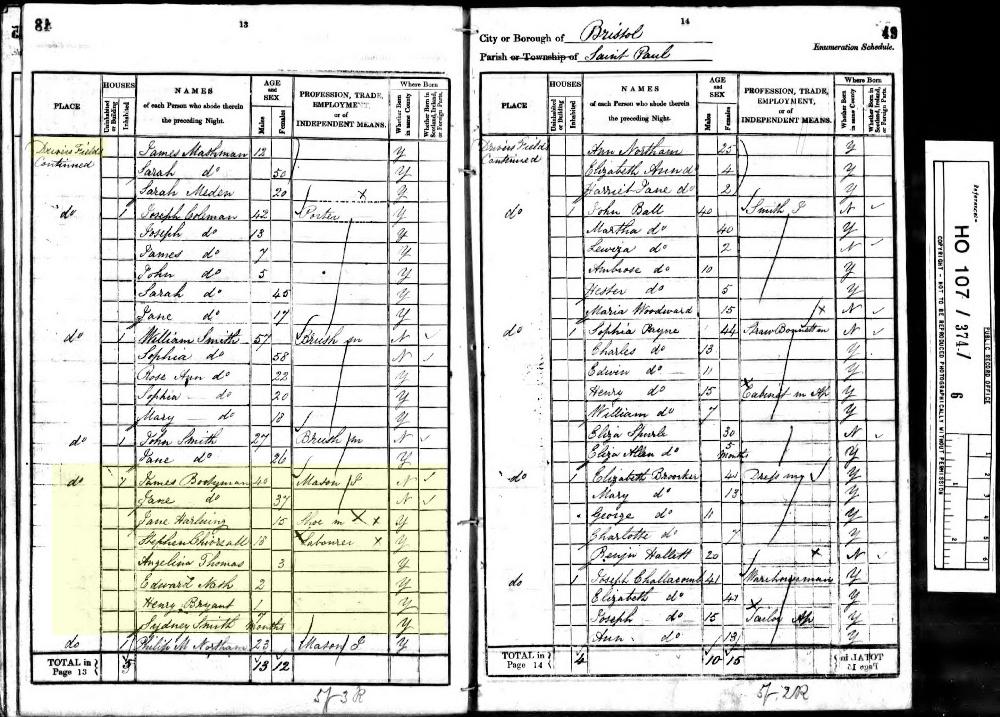 48
13
PLACE
HOUSES
Uninhabited or Building
Inhabited
NAMES
of each Person who abode therein
the preceding Night.
AGE and SEX
Males
Females
PROFESSION, TRADE,
EMPLOYMENT,
or of
INDEPENDENT MEANS.
Where Born
Whether Born in same County
Whether Born in Scotland, Ireland, or Foreign Parts.
Continued
James Mashman 12 Y
Sarah do 50 Y
Sarah Meden 20 Y
do 1 Joseph Coleman 42 Porter Y
Joseph do 13 Y
James do 7 Y
John do 5 Y
Sarah do 45 Y
Jane do 17 Y
do 1 William Smith 57 Brush m N
Sophia do 58 N
Rose Ann do 22 Y
Sophia do 20 Y
Mary do 18 Y
do 1 John Smith 27 Brush m N
Jane do 26 Y
do 1 James 40 Mason J N
Jane do 37 N
Jane 15 Shoe m Y
Stephen 18 Labourer Y
Angelina Thomas 3 Y
Edward Nash 2 Y
Henry Bryant 1 Y
Sydney Smith 7 months Y
do 1 Philip M Northam 23 Mason J Y
TOTAL in Page 13 5 13 12
5f 3R
14
49
City or Borough of Bristol
Parish or Township of Saint Paul
Enumeration Schedule.
PLACE
HOUSES
Uninhabited or Building
Inhabited
NAMES
of each Person who abode therein
the preceding Night.
AGE and SEX
Males
Females
PROFESSION, TRADE,
EMPLOYMENT,
or of
INDEPENDENT MEANS.
Where Born
Whether Born in same County
Whether Born in Scotland, Ireland, or Foreign Parts.
Continued
Ann Northam 25 Y
Elizabeth Ann do 4 Y
Harriet Jane do 2 Y
do 1 John Ball 40 Smith J N
Martha do 40 Y
Lewiza do 2 N
Ambrose do 10 Y
Hester do 5 Y
Maria Woodward 15 N
do 1 Sophia Payne 44 Straw Bonnett m N
Charles do 13 Y
Edwin do 11 Y
Henry do 15 Cabinet m Ap Y
William do 7 Y
Eliza Spurle 30 N
Eliza Allen do 5 months Y
do 1 Elizabeth Broorker 41 Dress mg Y
Mary do 13 Y
George do 11 Y
Charlotte do 7 Y
Benjn Hallett 20 N
do 1 Joseph Challacomb 41 Warehouseman Y
Elizabeth do 41 Y
Joseph do 15 Tailor Ap Y
Ann do 13 Y
TOTAL in Page 14 4 10 15
TOTAL in Page 15
5f 2R
Reference:-
HO 107 / 374 / 6
PUBLIC RECORD OFFICE
COPYRIGHT - NOT TO BE REPRODUCED PHOTOGRAPHICALLY WITHOUT PERMISSION